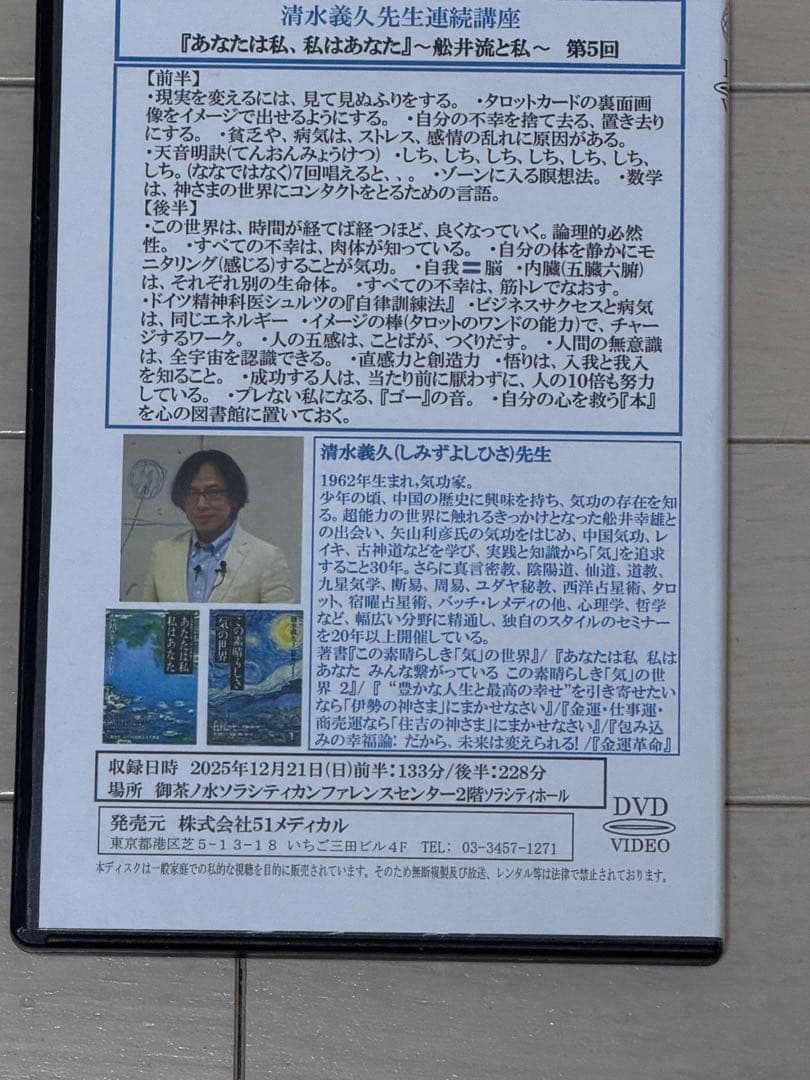 清水義久先生連続講座
『あなたは私、私はあなた』～舩井流と私～ 第5回
【前半】
・現実を変えるには、見て見ぬふりをする。 ・タロットカードの裏面画
像をイメージで出せるようにする。 ・自分の不幸を捨て去る、置き去り
にする。 ・貧乏や、病気は、ストレス、感情の乱れに原因がある。
・天音明訣(てんおんみょうけつ) ・しち、しち、しち、しち、しち、しち、
しち。(ななではなく)7回唱えると、、。 ・ゾーンに入る瞑想法。 ・数学
は、神さまの世界にコンタクトをとるための言語。
【後半】
・この世界は、時間が経てば経つほど、良くなっていく。論理的必然
性。 ・すべての不幸は、肉体が知っている。 ・自分の体を静かにモ
ニタリング(感じる)することが気功。 ・自我＝脳 ・内臓(五臓六腑)
は、それぞれ別の生命体。 ・すべての不幸は、筋トレでなおす。
・ドイツ精神科医シュルツの『自律訓練法』 ・ビジネスサクセスと病気
は、同じエネルギー ・イメージの棒(タロットのワンドの能力)で、チャー
ジするワーク。 ・人の五感は、ことばが、つくりだす。 ・人間の無意識
は、全宇宙を認識できる。 ・直感力と創造力 ・悟りは、入我と我入
を知ること。 ・成功する人は、当たり前に厭わずに、人の10倍も努力
している。 ・ブレない私になる、『ゴー』の音。 ・自分の心を救う『本』
を心の図書館に置いておく。
清水義久(しみずよしひさ)先生
1962年生まれ,気功家。
少年の頃、中国の歴史に興味を持ち、気功の存在を知
る。超能力の世界に触れるきっかけとなった舩井幸雄と
の出会い、矢山利彦氏の気功をはじめ、中国気功、レ
イキ、古神道などを学び、実践と知識から「気」を追求
すること30年。さらに真言密教、陰陽道、仙道、道教、
九星気学、断易、周易、ユダヤ秘教、西洋占星術、タロ
ット、宿曜占星術、バッチ・レメディの他、心理学、哲学
など、幅広い分野に精通し、独自のスタイルのセミナー
を20年以上開催している。
著書『この素晴らしき「気」の世界』/『あなたは私 私は
あなた みんな繋がっている この素晴らしき「気」の世
界 2』/『 “豊かな人生と最高の幸せ”を引き寄せたい
なら「伊勢の神さま」にまかせなさい』/『金運・仕事運・
商売運なら「住吉の神さま」にまかせなさい』/『包み込
みの幸福論: だから、未来は変えられる! /『金運革命』
あなたは私
私はあなた
この素晴らしき
気の世界
収録日時 2025年12月21日(日)前半:133分/後半:228分
場所 御茶ノ水ソラシティカンファレンスセンター2階ソラシティホール
発売元 株式会社51メディカル
東京都港区芝5-13-18 いちご三田ビル4F TEL: 03-3457-1271
DVD
VIDEO
本ディスクは一般家庭での私的な視聴を目的に販売されています。そのため無断複製及び放送、レンタル等は法律で禁止されております。